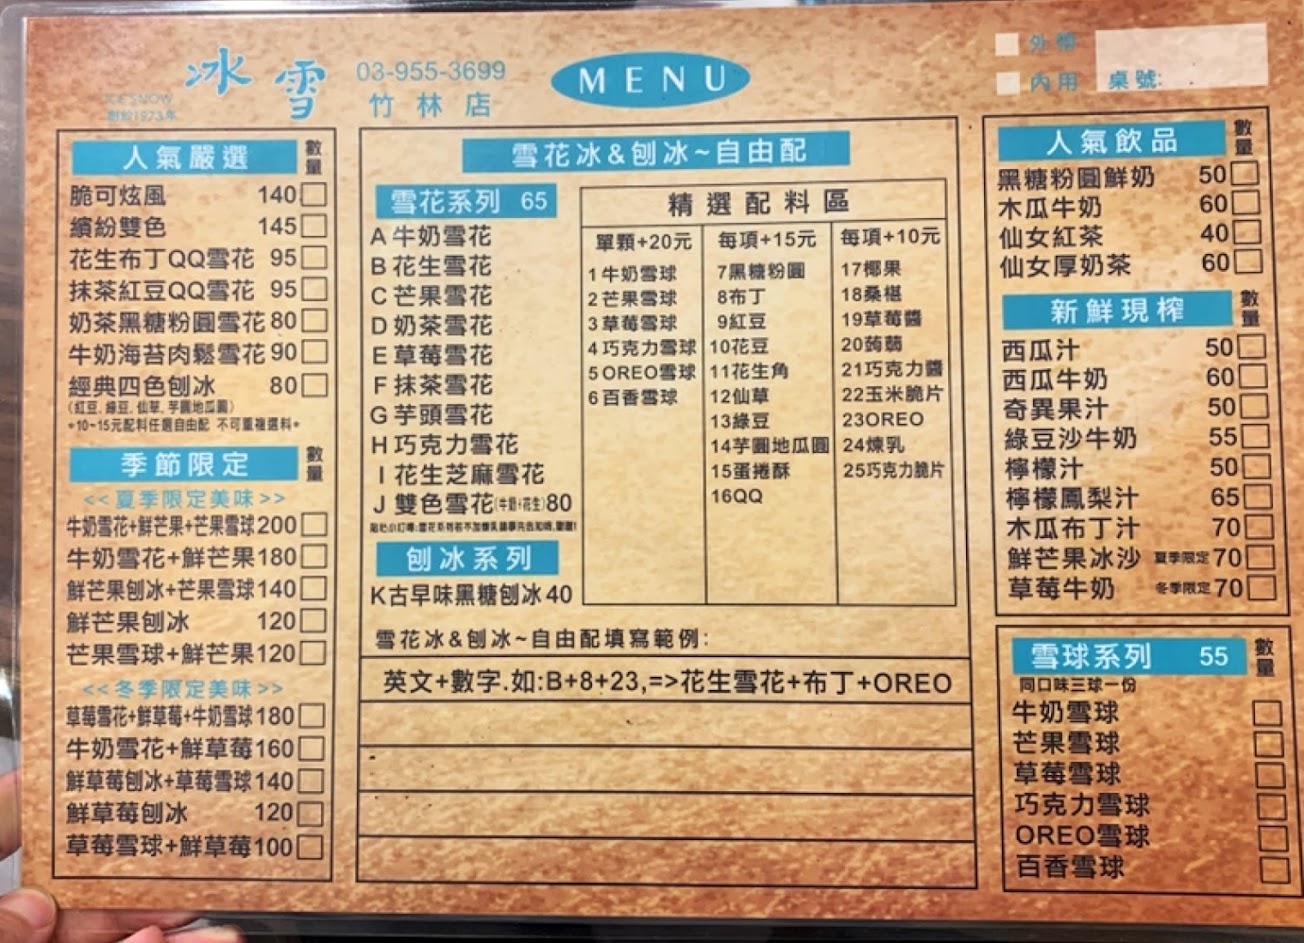 冰雪
ICE SNOW
創於1973年
03-955-3699
竹林店
MENU
外帶
內用 桌號:
人氣嚴選 數量
脆可炫風 140
繽紛雙色 145
花生布丁QQ雪花 95
抹茶紅豆QQ雪花 95
奶茶黑糖粉圓雪花 80
牛奶海苔肉鬆雪花 90
經典四色刨冰 80
(紅豆, 綠豆, 仙草, 芋圓地瓜圓)
*10~15元配料任選自由配 不可重複選料*
季節限定 數量
<<夏季限定美味>>
牛奶雪花+鮮芒果+芒果雪球 200
牛奶雪花+鮮芒果 180
鮮芒果刨冰+芒果雪球 140
鮮芒果刨冰 120
芒果雪球+鮮芒果 120
<<冬季限定美味>>
草莓雪花+鮮草莓+牛奶雪球 180
牛奶雪花+鮮草莓 160
鮮草莓刨冰+草莓雪球 140
鮮草莓刨冰 120
草莓雪球+鮮草莓 100
雪花冰&刨冰~自由配
雪花系列 65
A 牛奶雪花
B 花生雪花
C 芒果雪花
D 奶茶雪花
E 草莓雪花
F 抹茶雪花
G 芋頭雪花
H 巧克力雪花
I 花生芝麻雪花
J 雙色雪花(牛奶+花生)80
貼心小叮嚀:雪花系列若不加煉乳請事先告知唷,謝謝!
刨冰系列
K古早味黑糖刨冰 40
精選配料區
單顆+20元
1牛奶雪球
2芒果雪球
3草莓雪球
4巧克力雪球
5OREO雪球
6百香雪球
每項+15元
7黑糖粉圓
8布丁
9紅豆
10花豆
11花生角
12仙草
13綠豆
14芋圓地瓜圓
15蛋捲酥
16QQ
每項+10元
17椰果
18桑椹
19草莓醬
20蒟蒻
21巧克力醬
22玉米脆片
23OREO
24煉乳
25巧克力脆片
雪花冰&刨冰~自由配填寫範例:
英文+數字.如:B+8+23,=>花生雪花+布丁+OREO
人氣飲品 數量
黑糖粉圓鮮奶 50
木瓜牛奶 60
仙女紅茶 40
仙女厚奶茶 60
新鮮現榨 數量
西瓜汁 50
西瓜牛奶 60
奇異果汁 50
綠豆沙牛奶 55
檸檬汁 50
檸檬鳳梨汁 65
木瓜布丁汁 70
鮮芒果冰沙 夏季限定 70
草莓牛奶 冬季限定 70
雪球系列 55 數量
同口味三球一份
牛奶雪球
芒果雪球
草莓雪球
巧克力雪球
OREO雪球
百香雪球